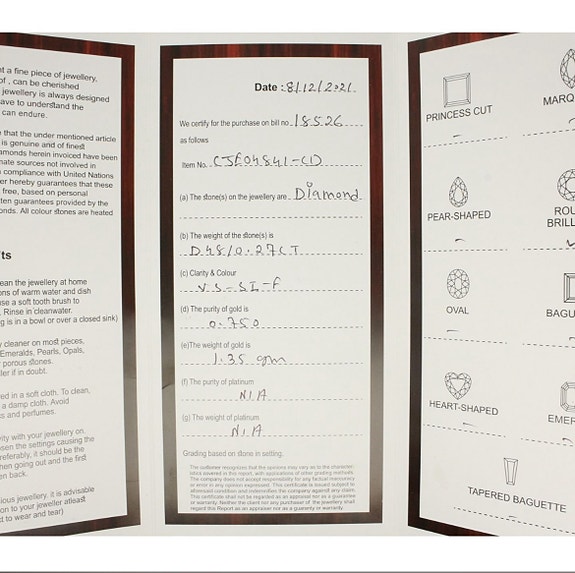 nt a fine piece of jewellery,
of , can be cherished
jewellery is always designed
ave to understand the
can endure.
e that the under mentioned article
is genuine and of finest
amonds herein invoiced have been
mate sources not involved in
compliance with United Nations
er hereby guarantees that these
free, based on personal
tten guarantees provided by the
onds. All colour stones are heated
fts
ean the jewellery at home
ons of warm water and dish
use a soft tooth brush to
Rinse in cleanwater.
ng is in a bowl or over a closed sink)
y cleaner on most pieces,
Emeralds, Pearls, Opals,
porous stones.
ler if in doubt.
red in a soft cloth. To clean,
a damp cloth. Avoid
cs and perfumes.
vity with your jewellery on.
osen the settings causing the
referably, it should be the
hen going out and the first
en back.
ious jewellery, it is advisable
on to your jeweller atleast
ct to wear and tear)
Date : 8/12/2021
We certify for the purchase on bill no 18526
as follows
Item No. CJE04841-CD
(a) The stone(s) on the jewellery are Diamond
(b) The weight of the stone(s) is
D.48/0.27CT
(c) Clarity & Colour
VS-SI-F
(d) The purity of gold is
0.750
(e)The weight of gold is
1.35 gm
(f) The purity of platinum
N/A
(g) The weight of platinum
N/A
Grading based on stone in setting.
The customer recognises that the opinions may vary as to the character-
istics covered in this report, with applications of other grading methods.
The company does not accept responsibility for any factual inaccuracy
or error in any opinion expressed. This certificate is issued subject to
aforesaid condition and indemnifies the company against any claim.
This certificate shall not be regarded as an appraisal nor as a guarantee
or warranty. Neither the client nor any purchaser of the jewellery shall
regard this Report as an appraiser nor as a guaranty or warranty.
PRINCESS CUT
MARQ
PEAR-SHAPED
ROU
BRILL
OVAL
BAGU
HEART-SHAPED
EMER
TAPERED BAGUETTE